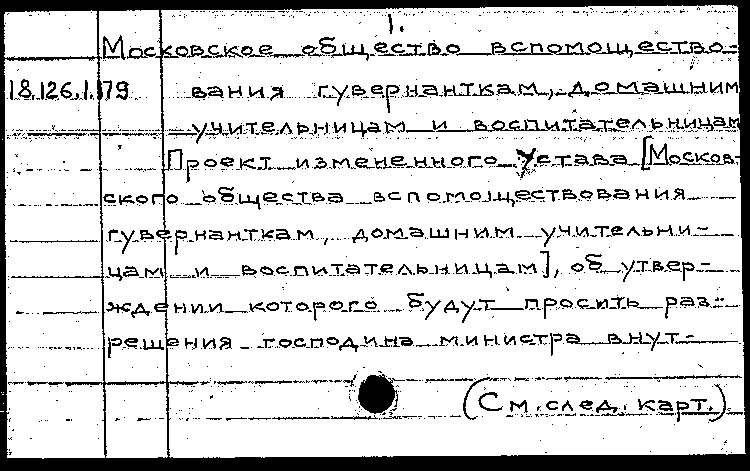 1.
Московское общество вспомощество-
18.126.1.179 вания гувернанткам, домашним
учительницам и воспитательницам
Проект измененного Устава [Москов-
ского общества вспомоществования
гувернанткам, домашним учительни-
цам и воспитательницам], об утвер-
ждении которого будут просить раз-
решения господина министра внут-
(См. след. карт.)